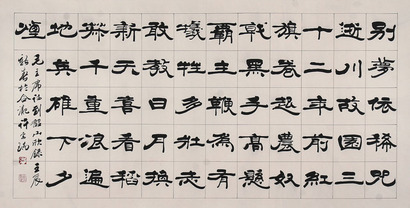 别夢依稀咒
逝川故園三
十二年前紅
旗卷起農奴
戟黑手高懸
霸主鞭為有
犧牲多壯志
敢教日月換
新天喜看稻
菽千重浪遍
地英雄下夕
煙
毛主席詩到韶山 壬辰
於合肥